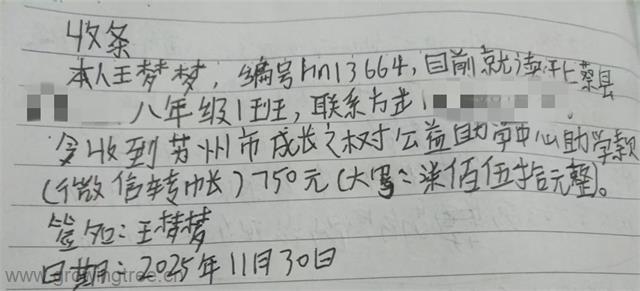 收条
本人王梦梦，编号hn13664，目前就读于上蔡县
八年级1班，联系方式1
今收到苏州市成长之树公益助学中心助学款
(微信转帐)750元(大写：柒佰伍拾元整)。
签名：王梦梦
日期：2025年11月30日
www.growingtree.cn